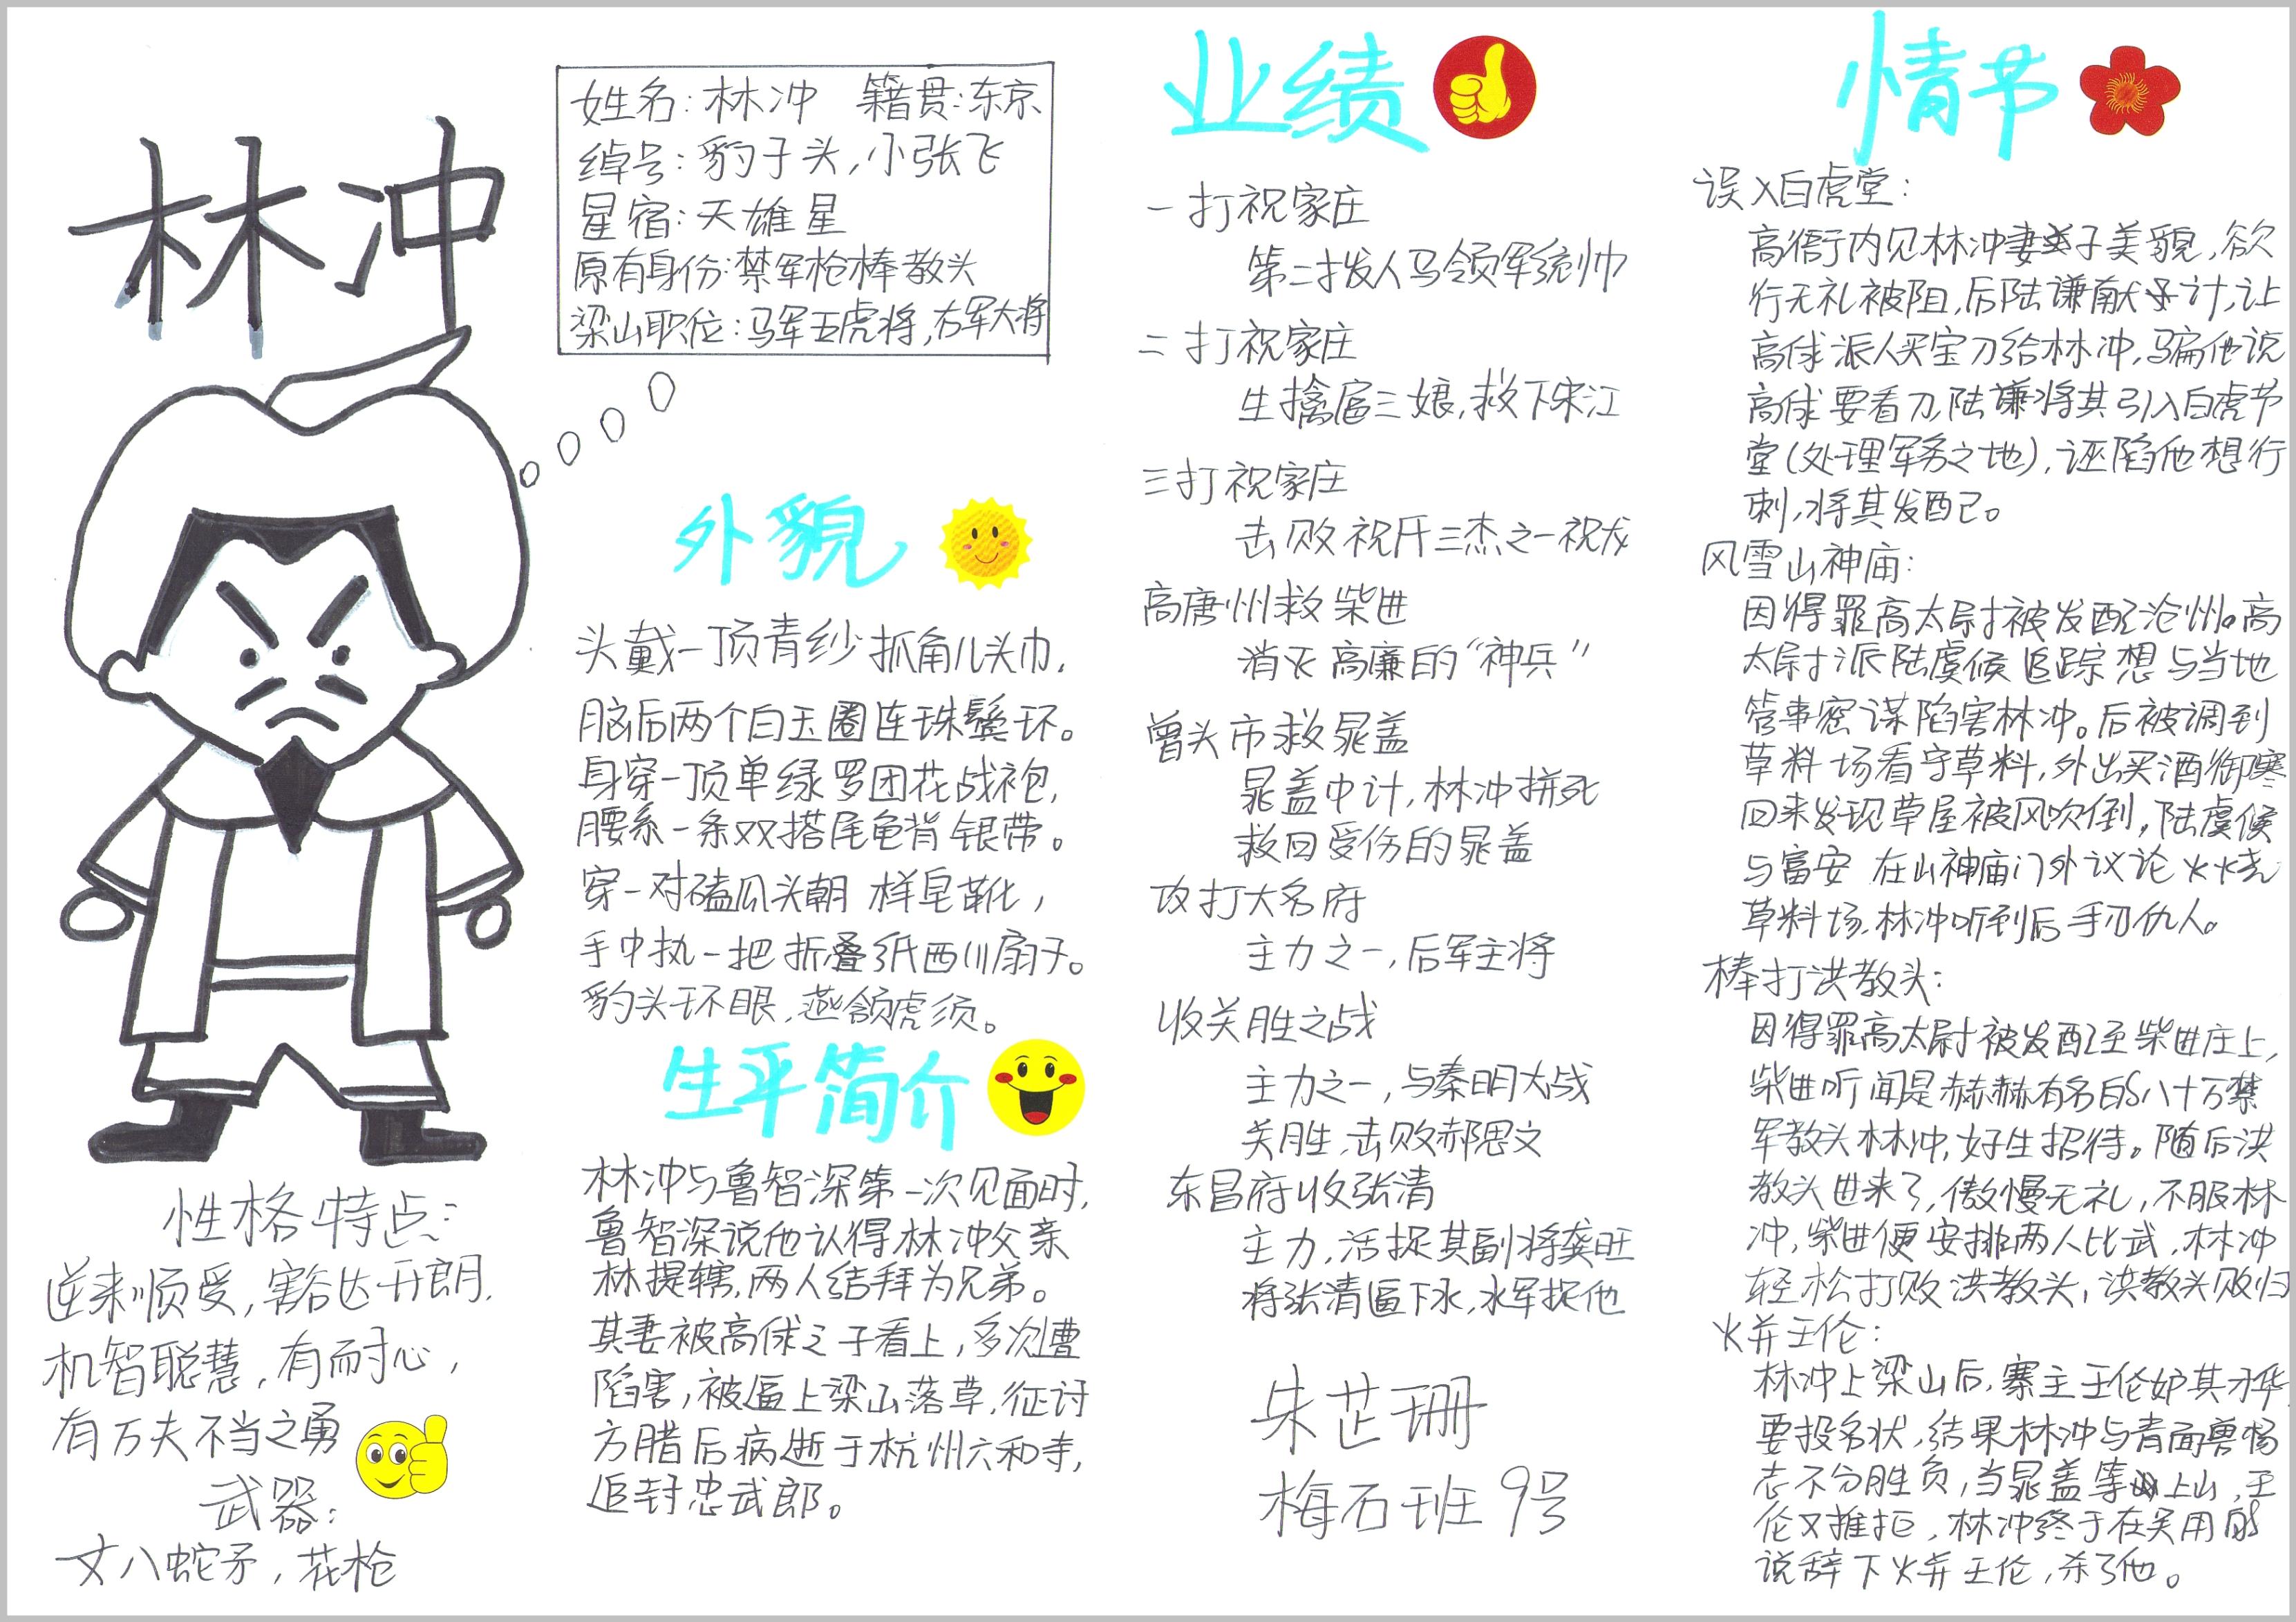 林冲
姓名：林冲 籍贯：东京
绰号：豹子头，小张飞
星宿：天雄星
原有身份：禁军枪棒教头
梁山职位：马军五虎将，右军大将
性格特点：
逆来顺受，豁达开朗，
机智聪慧，有耐心，
有万夫不当之勇
武器：
丈八蛇矛，花枪
外貌
头戴一顶青纱抓角儿头巾，
脑后两个白玉圈连珠鬓环。
身穿一顶单绿罗团花战袍，
腰系一条双搭尾龟背银带。
穿一对磕瓜头朝样皂靴，
手中执一把折叠纸西川扇子。
豹头环眼，燕颔虎须。
生平简介
林冲与鲁智深第一次见面时，
鲁智深说他认得林冲父亲
林提辖，两人结拜为兄弟。
其妻被高俅之子看上，多次遭
陷害，被逼上梁山落草，征讨
方腊后病逝于杭州六和寺，
追封忠武郎。
业绩
一打祝家庄
第二拨人马领军统帅
二打祝家庄
生擒扈三娘，救下宋江
三打祝家庄
击败祝氏三杰之一祝龙
高唐州救柴进
消灭高廉的“神兵”
曾头市救晁盖
晁盖中计，林冲拼死
救回受伤的晁盖
攻打大名府
主力之一，后军主将
收关胜之战
主力之一，与秦明大战
关胜，击败郝思文
东昌府收张清
主力，活捉其副将龚旺
将张清逼下水，水军捉他
朱芷珊
梅石班9号
情节
误入白虎堂：
高衙内见林冲妻子美貌，欲
行无礼被阻，后陆谦献计，让
高俅派人买宝刀给林冲，骗他说
高俅要看刀，陆谦将其引入白虎节
堂（处理军务之地），诬陷他想行
刺，将其发配。
风雪山神庙：
因得罪高太尉被发配沧州。高
太尉派陆虞候追踪想与当地
管事密谋陷害林冲。后被调到
草料场看守草料，外出买酒御寒
回来发现草屋被风吹倒，陆虞候
与富安在山神庙门外议论火烧
草料场，林冲听到后手刃仇人。
棒打洪教头：
因得罪高太尉被发配至柴进庄上，
柴进听闻是赫赫有名的八十万禁
军教头林冲，好生招待。随后洪
教头进来了，傲慢无礼，不服林
冲，柴进便安排两人比武，林冲
轻松打败洪教头，洪教头败归
火并王伦：
林冲上梁山后，寨主王伦妒其才华
要投名状，结果林冲与青面兽杨
志不分胜负，当晁盖等上山，王
伦又推拒，林冲终于在吴用的
说辞下火并王伦，杀了他。